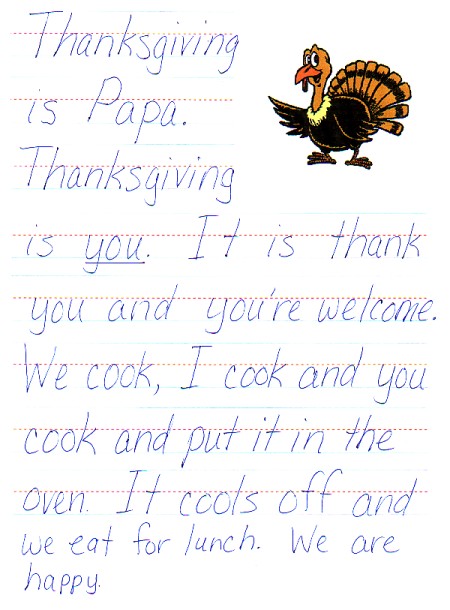 Thanksgiving
is Papa.
Thanksgiving
is you. It is thank
you and you're welcome.
We cook, I cook and you
cook and put it in the
oven. It cools off and
we eat for lunch. We are
happy.